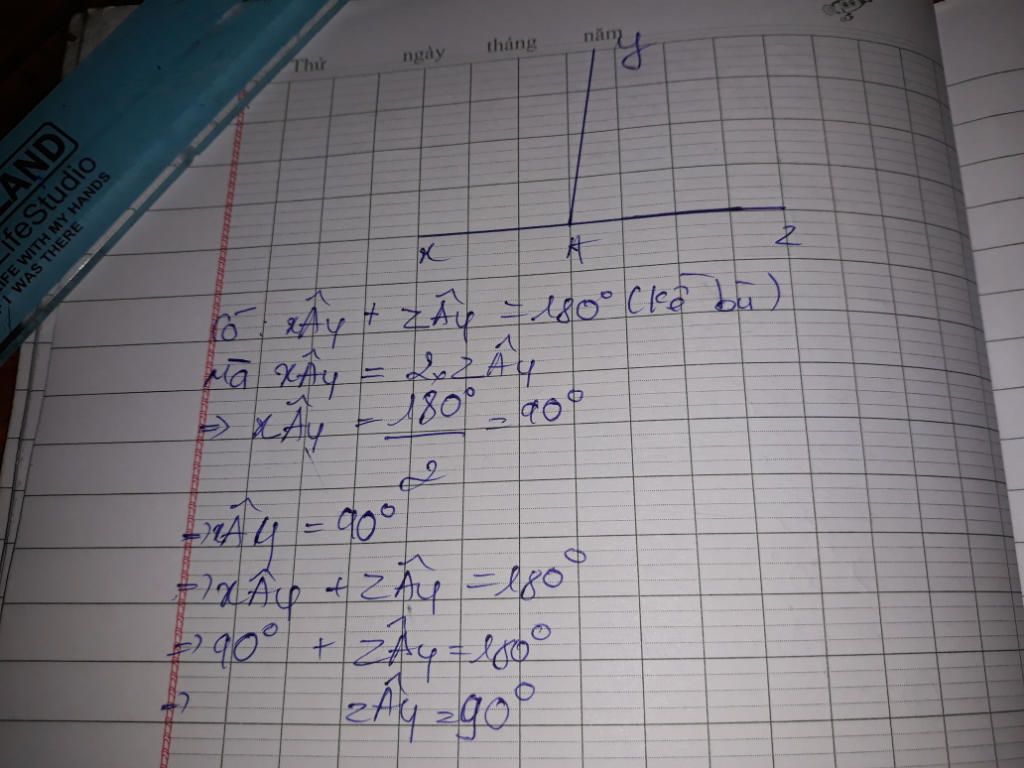 LAND
LifeStudio
LIFE WITH MY HANDS
I WAS THERE
Thứ ngày tháng năm
y
x A z
Có: xÂy + zÂy = 180° (kề bù)
mà xÂy = 2.zÂy
=> xÂy = 180°/2 = 90°
=> xÂy = 90°
=> xÂy + zÂy = 180°
=> 90° + zÂy = 180°
=> zÂy = 90°